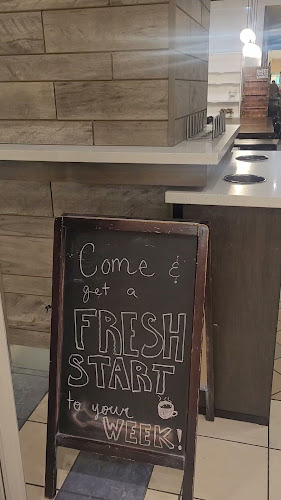 Come &
get a
FRESH
START
to your
WEEK!